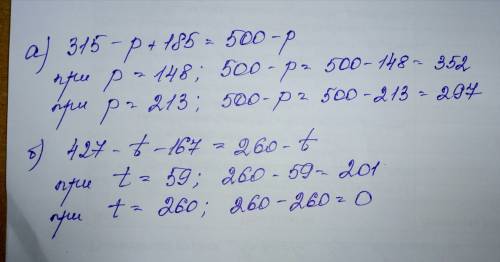 а) 315 - p + 185 = 500 - p
при p = 148; 500 - p = 500 - 148 = 352
при p = 213; 500 - p = 500 - 213 = 297
б) 427 - t - 167 = 260 - t
при t = 59; 260 - 59 = 201
при t = 260; 260 - 260 = 0